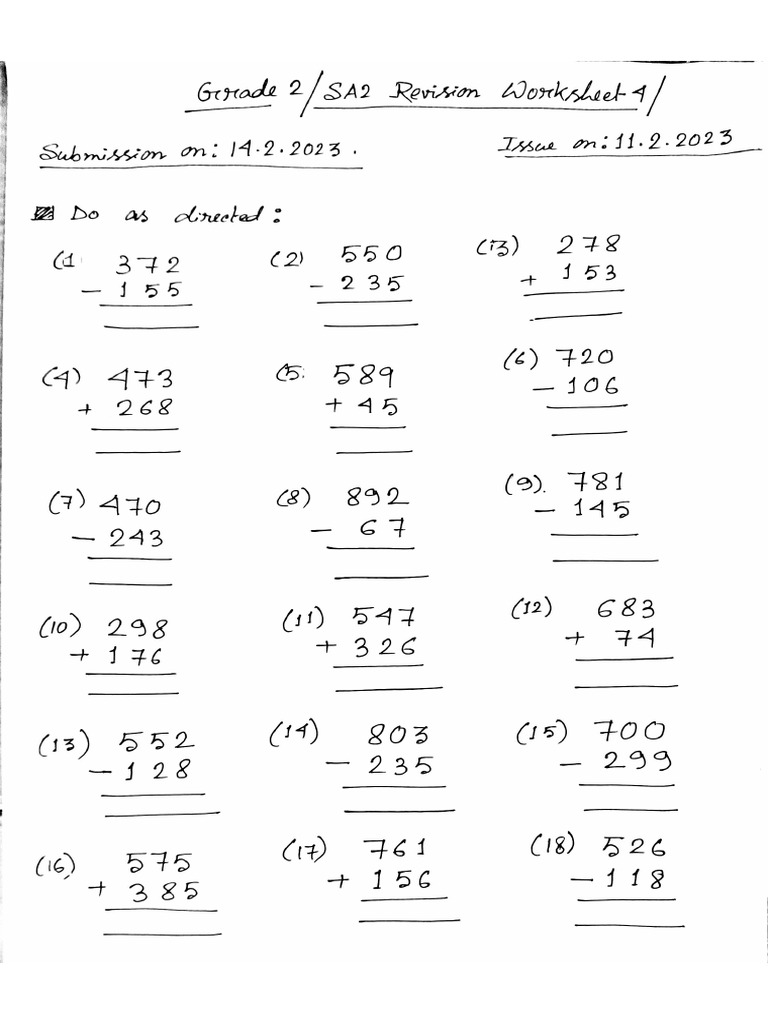 Grade 2/SA2 Revision Worksheet 4/
Submission on: 14.2.2023.
Issue on: 11.2.2023
Do as directed:
(1 372 (2) 550 (3) 278
- 155 - 235 + 153
(4) 473 (5: 589 (6) 720
+ 268 + 45 - 106
(7) 470 (8) 892 (9). 781
- 243 - 67 - 145
(10) 298 (11) 547 (12) 683
+ 176 + 326 + 74
(13) 552 (14) 803 (15) 700
- 128 - 235 - 299
(16) 575 (17) 761 (18) 526
+ 385 + 156 - 118